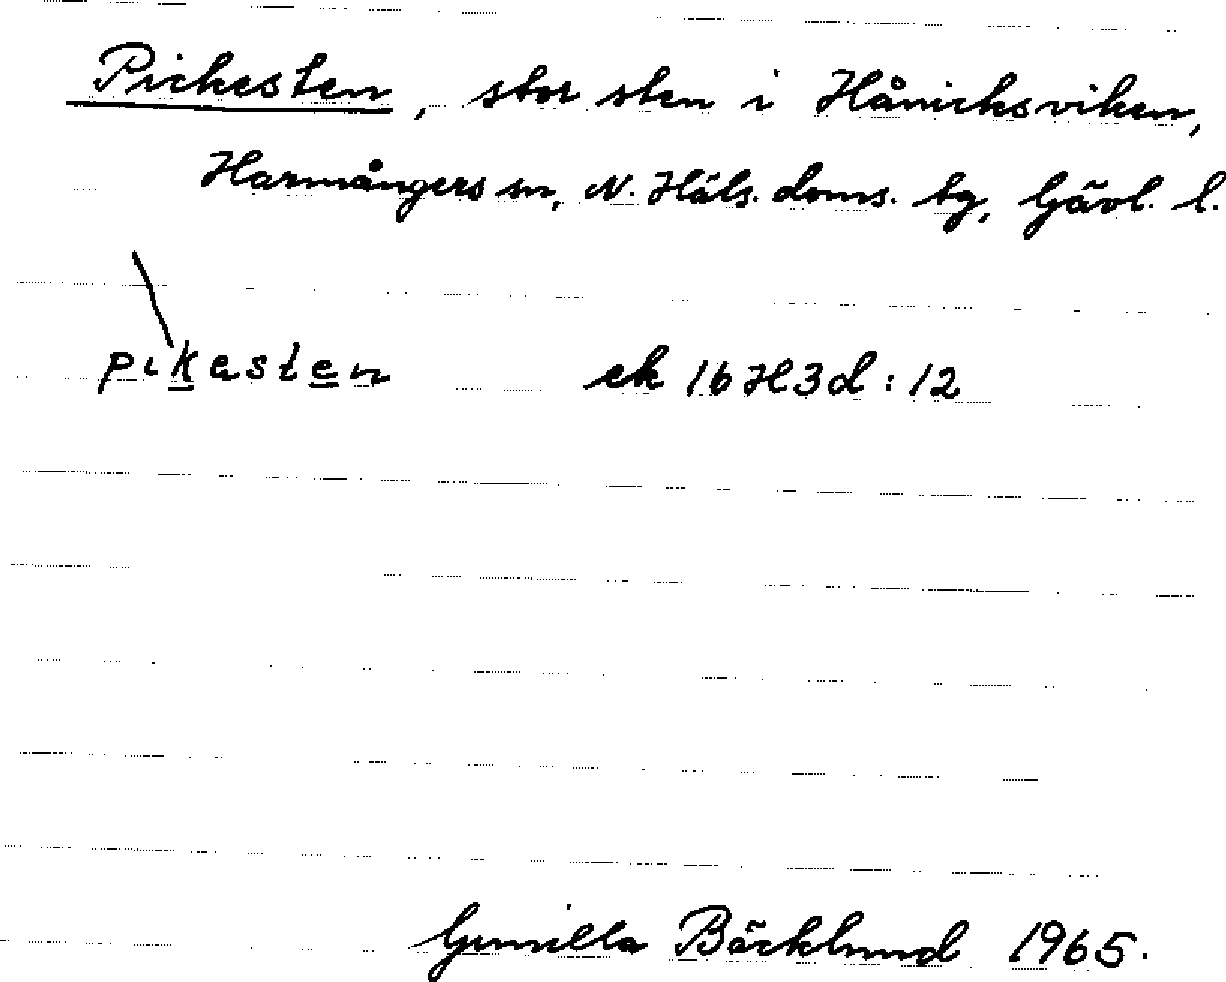 Pickesten, stor sten i Hånicksviken,
Harmångers sn, N. Häls. doms. tg, Gävl. l.
pikesten ek 16H3d:12
Gunilla Bäcklund 1965.